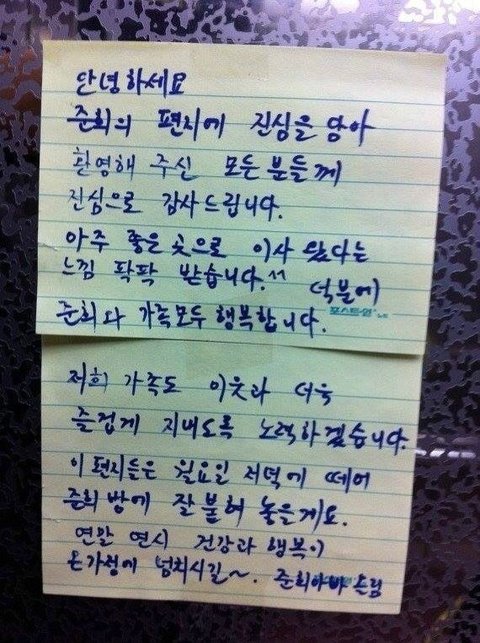 안녕하세요
준희의 편지에 진심을 담아
환영해 주신 모든 분들께
진심으로 감사드립니다.
아주 좋은 곳으로 이사 왔다는
느낌 팍팍 받습니다.^^ 덕분에
준희와 가족모두 행복합니다.
포스트-잇 노트
저희 가족도 이웃과 더욱
즐겁게 지내도록 노력하겠습니다.
이 편지들은 월요일 저녁에 떼어
준희 방에 잘 붙혀 놓을게요.
연말 연시 건강과 행복이
온가정에 넘치시길~. 준희아빠 드림